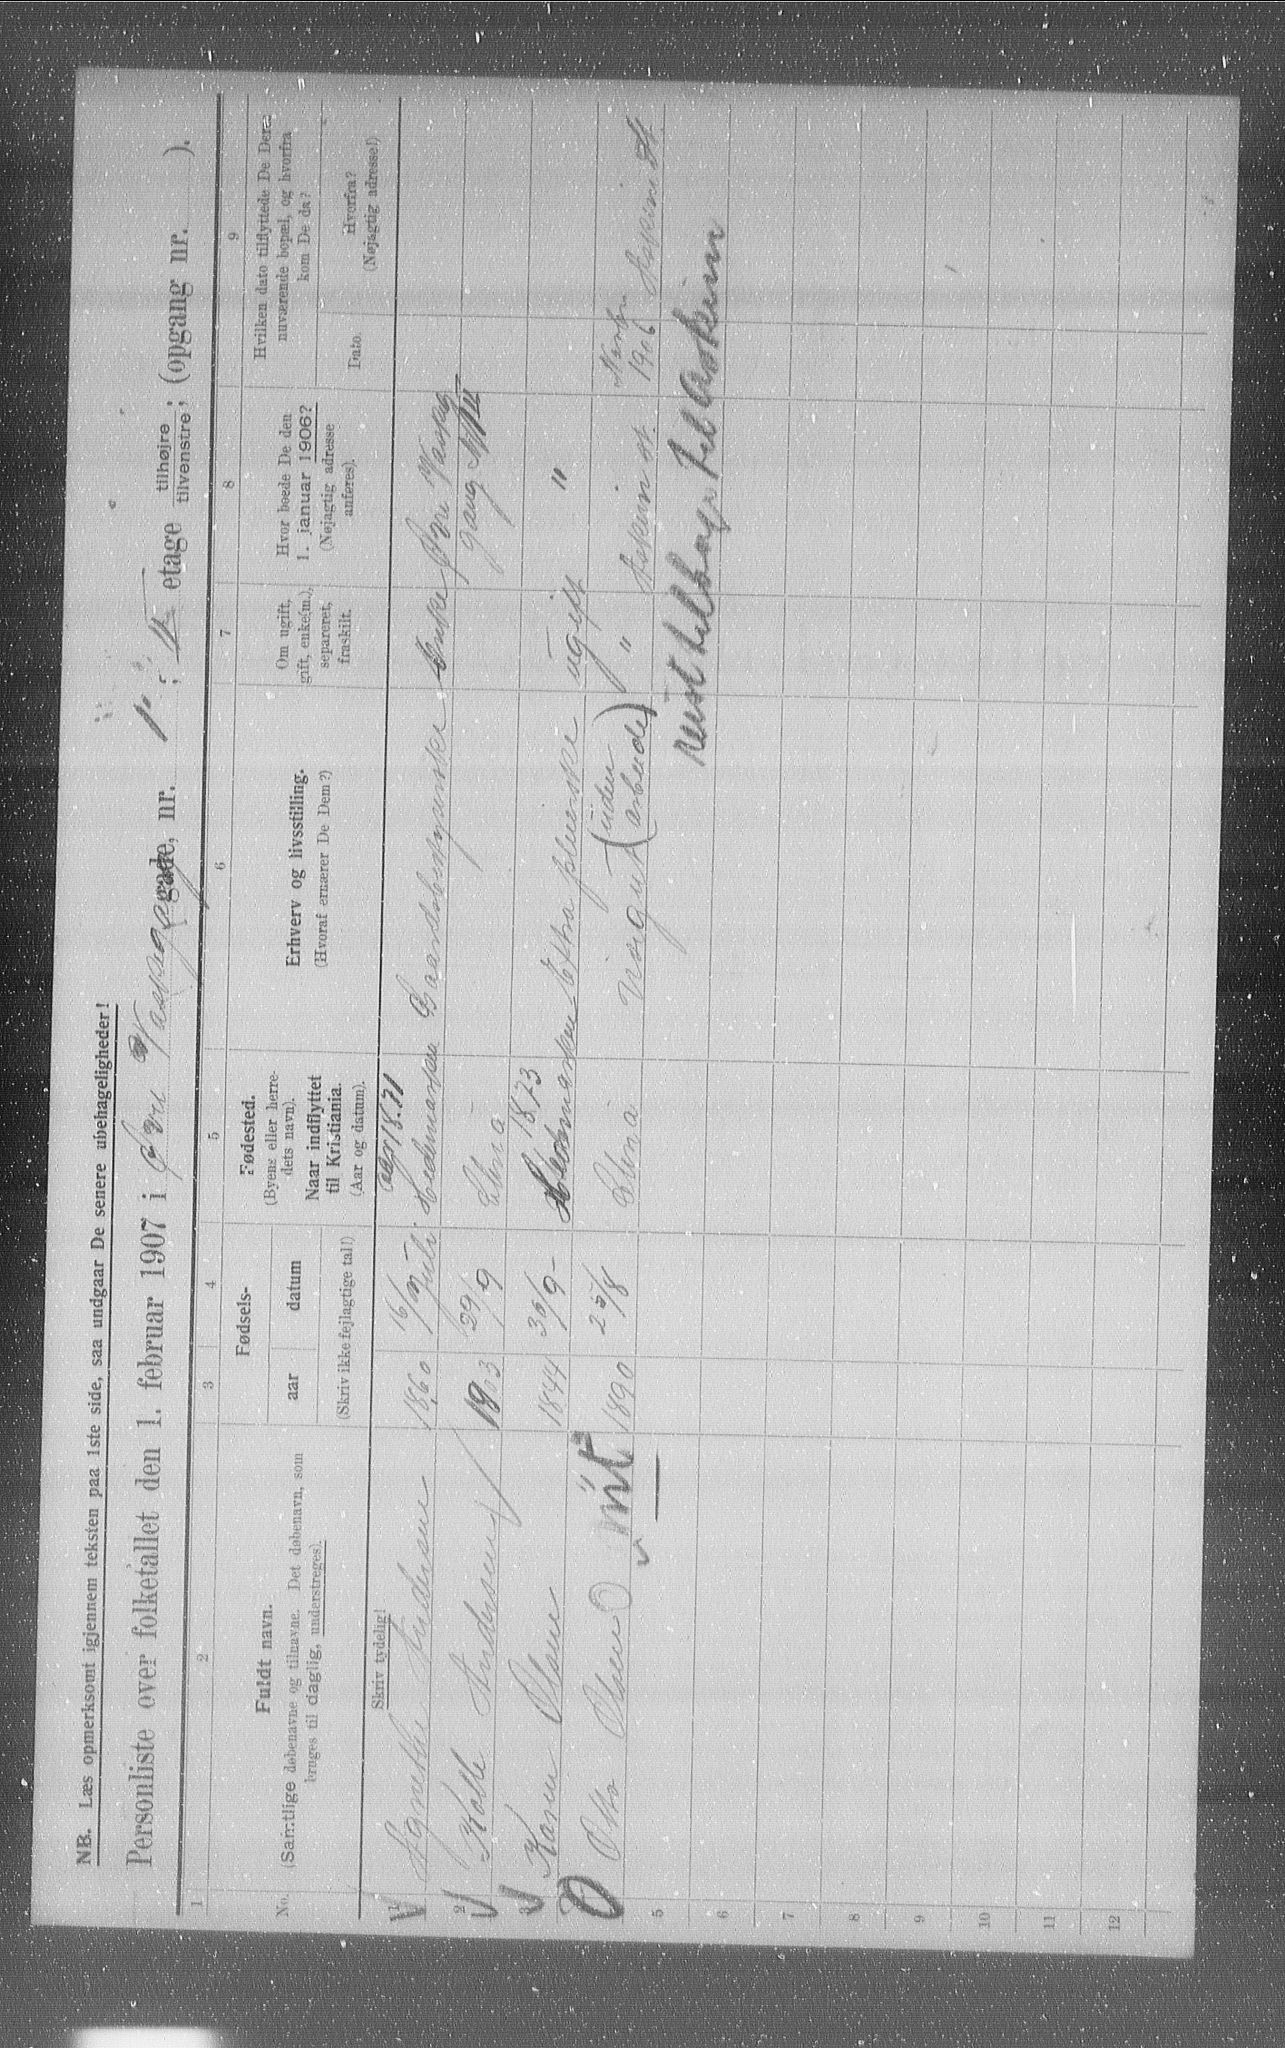 NB. Læs opmerksomt igjennem teksten paa 1ste side, saa undgaar De senere ubehageligheder!
Personliste over folketallet den 1. februar 1907 i Øvre Vaskegang gade, nr. 1; II etage tilhøjre tilvenstre; (opgang nr. ).
1 2 3 4 5 6 7 8 9
No.
Fuldt navn.
(Samtlige døbenavne og tilnavne. Det døbenavn, som
bruges til daglig, understreges).
Fødsels-
aar datum
(Skriv ikke fejlagtige tal!)
Fødested.
(Byens eller herre-
dets navn).
Naar indflyttet
til Kristiania.
(Aar og datum).
Erhverv og livsstilling.
(Hvoraf ernærer De Dem?)
Om ugift,
gift, enke(m.),
separeret,
fraskilt.
Hvor boede De den
1. januar 1906?
(Nøjagtig adresse
anføres).
Hvilken dato tilflyttede De Deres
nuværende bopæl, og hvorfra
kom De da?
Dato.
Hvorfra?
(Nøjagtig adresse!)
Skriv tydelig!
1 Andersen 1860 16/ Juli Hedemarken 1871 Enke Øvre Vaskegang
2 Andersen 1903 29/9
3 Karen Olsen 1844 30/9 Hedemarken 1873 ugift "
Otto Olsen 1890 25/8 Visegut (uden arbeide) " Askim st. 1906 Askim St.
reist tilbage til Askim
5
6
7
8
9
10
11
12